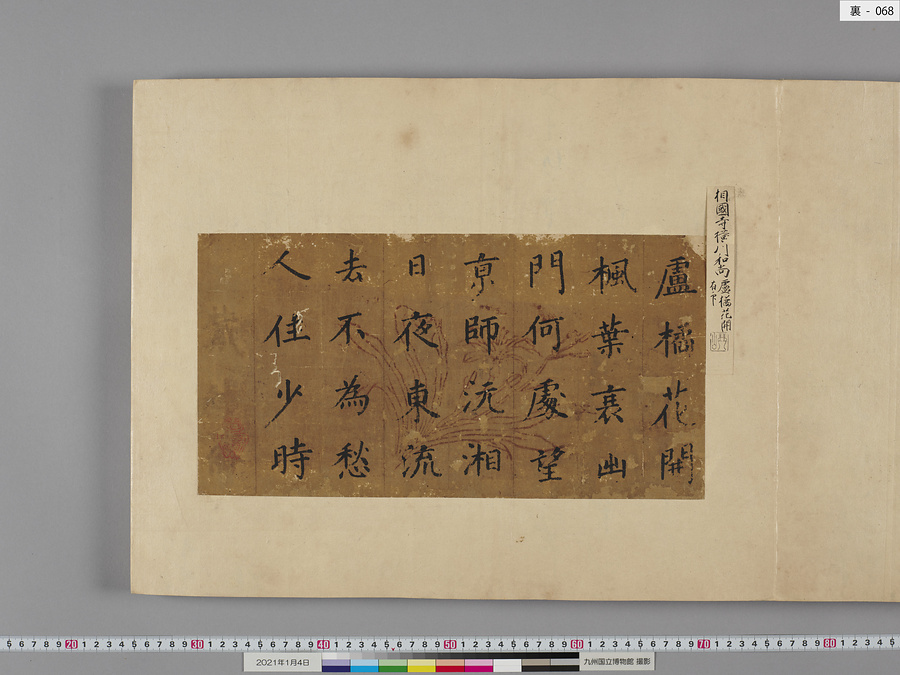 裏 - 068
相國寺横川和尚 盧橘花開
盧橘花開
楓葉衰出
門何處望
京師沅湘
日夜東流
去不為愁
人住少時
5 6 7 8 9 20 1 2 3 4 5 6 7 8 9 30 1 2 3 4 5 6 7 8 9 40 1 2 3 4 5 6 7 8 9 50 1 2 3 4 5 6 7 8 9 60 1 2 3 4 5 6 7 8 9 70 1 2 3 4 5 6 7 8 9 80 1 2 3 4 5
2021年1月4日
九州国立博物館 撮影